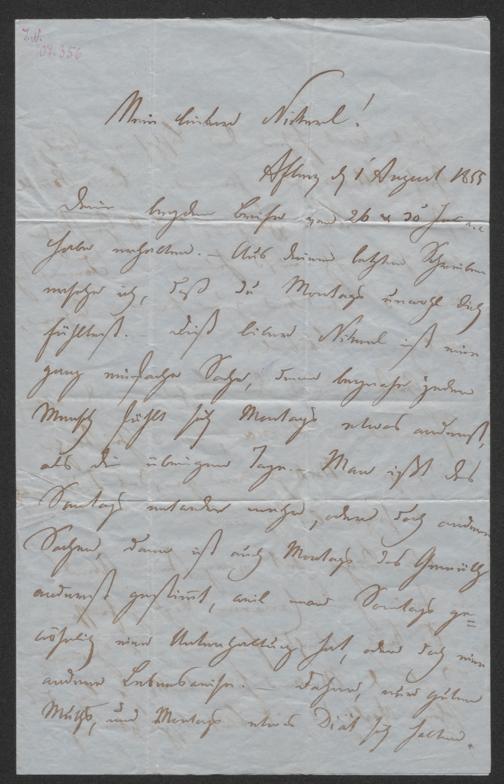 Mein lieber Nikerl!
Aflenz d 1 August 1855
Deine beyden Briefe vom 26 & 30 Juli
habe erhalten. – Aus deinem letzten Schreiben
ersehe ich, daß du Montags unwohl dich
fühltest. Dieß lieber Nikerl ist eine
ganz einfache Sache, denn beynahe jeder
Mensch fühlt sich Montags etwas anderst,
als die übrigen Tage. – Man ißt des
Sontags entweder mehr, oder doch andere
Sachen, dann ist auch Montags das Gemüth
anderst gestimt, weil man Sontags ge=
wöhnlich eine Unterhaltung hat, oder doch eine
andere Lebensweise. – Daher, nur guten
Muths, und Montags etwas Diät sich halten.